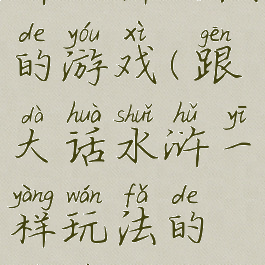 de yóu xì gēn
的游戏(跟
dà huà shuǐ hǔ yī
大话水浒一
yàng wán fǎ de
样玩法的